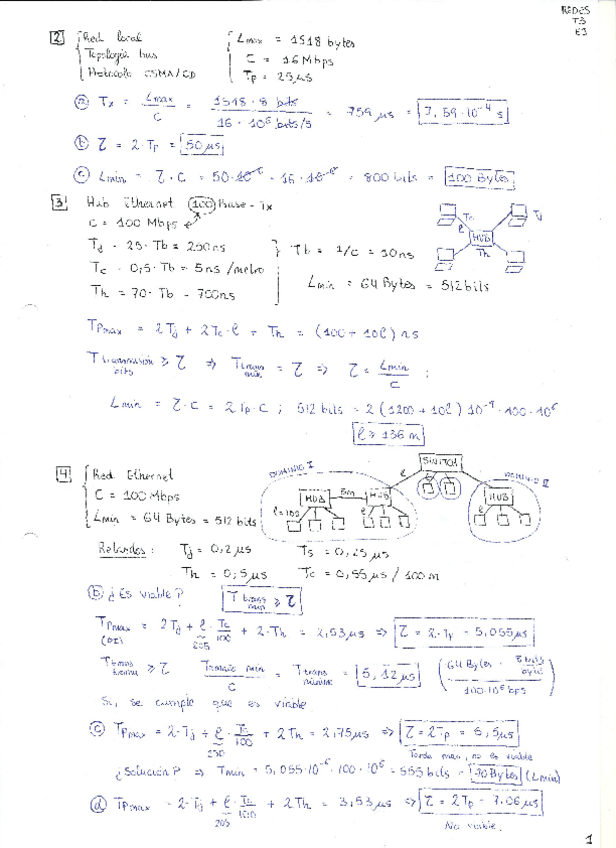 REDES
T3
E1
2 Red local
Topología bus
Protocolo CSMA/CD
Lmax = 1518 bytes
C = 16 Mbps
Tp = 25 μs
a Tx = Lmax / C = 1518 · 8 bits / 16 · 10^6 bits/s = 759 μs = 7,59 · 10^-4 s
b τ = 2 · Tp = 50 μs
c Lmin = τ · C = 50·10^-6 · 16·10^6 = 800 bits = 100 Bytes
3 Hub Ethernet 100 Base-Tx
C = 100 Mbps
Tj = 25·Tb = 250ns
Tc = 0,5·Tb = 5ns/metro
Th = 70·Tb = 700ns
Tb = 1/C = 10ns
Lmin = 64 Bytes = 512 bits
Tc Tj
l HUB
Th
TPmax = 2Tj + 2Tc·l + Th = (1200 + 10l) ns
T transmisión bits ≥ τ ⇒ T trans min = τ ⇒ τ = Lmin / C ;
Lmin = τ·C = 2Tp·C ; 512 bits = 2 (1200 + 10l) 10^-9 · 100·10^6
l ≥ 136 m
4 Red Ethernet
C = 100 Mbps
Lmin = 64 Bytes = 512 bits
DOMINIO I
SWITCH
DOMINIO II
HUB 5m HUB l HUB
l=100 l l
Retardos: Tj = 0,2 μs Ts = 0,25 μs
Th = 0,5 μs Tc = 0,55 μs / 100 m
b ¿Es viable? T trans min ≥ τ
TPmax (DI) = 2Tj + l · Tc/100 + 2·Th = 2,53 μs ⇒ τ = 2·Tp = 5,055 μs
205
T trans ≥ τ Tamaño min / C = T trans mínimo = 5,12 μs (64 Bytes · 8 bits/byte / 100·10^6 bps)
Si, se cumple que es viable.
c TPmax = 2·Tj + l · Tc/100 + 2Th = 2,75 μs ⇒ τ = 2Tp = 5,5 μs
250
Tarda mas, no es viable
¿Solución? ⇒ Tmin = 5,055·10^-6 · 100·10^6 = 555 bits = 70 Bytes (Lmin)
d TPmax = 2·Tj + l · Tc/100 + 2Th = 3,53 μs ⇒ τ = 2Tp = 7,06 μs
205
No viable.
1